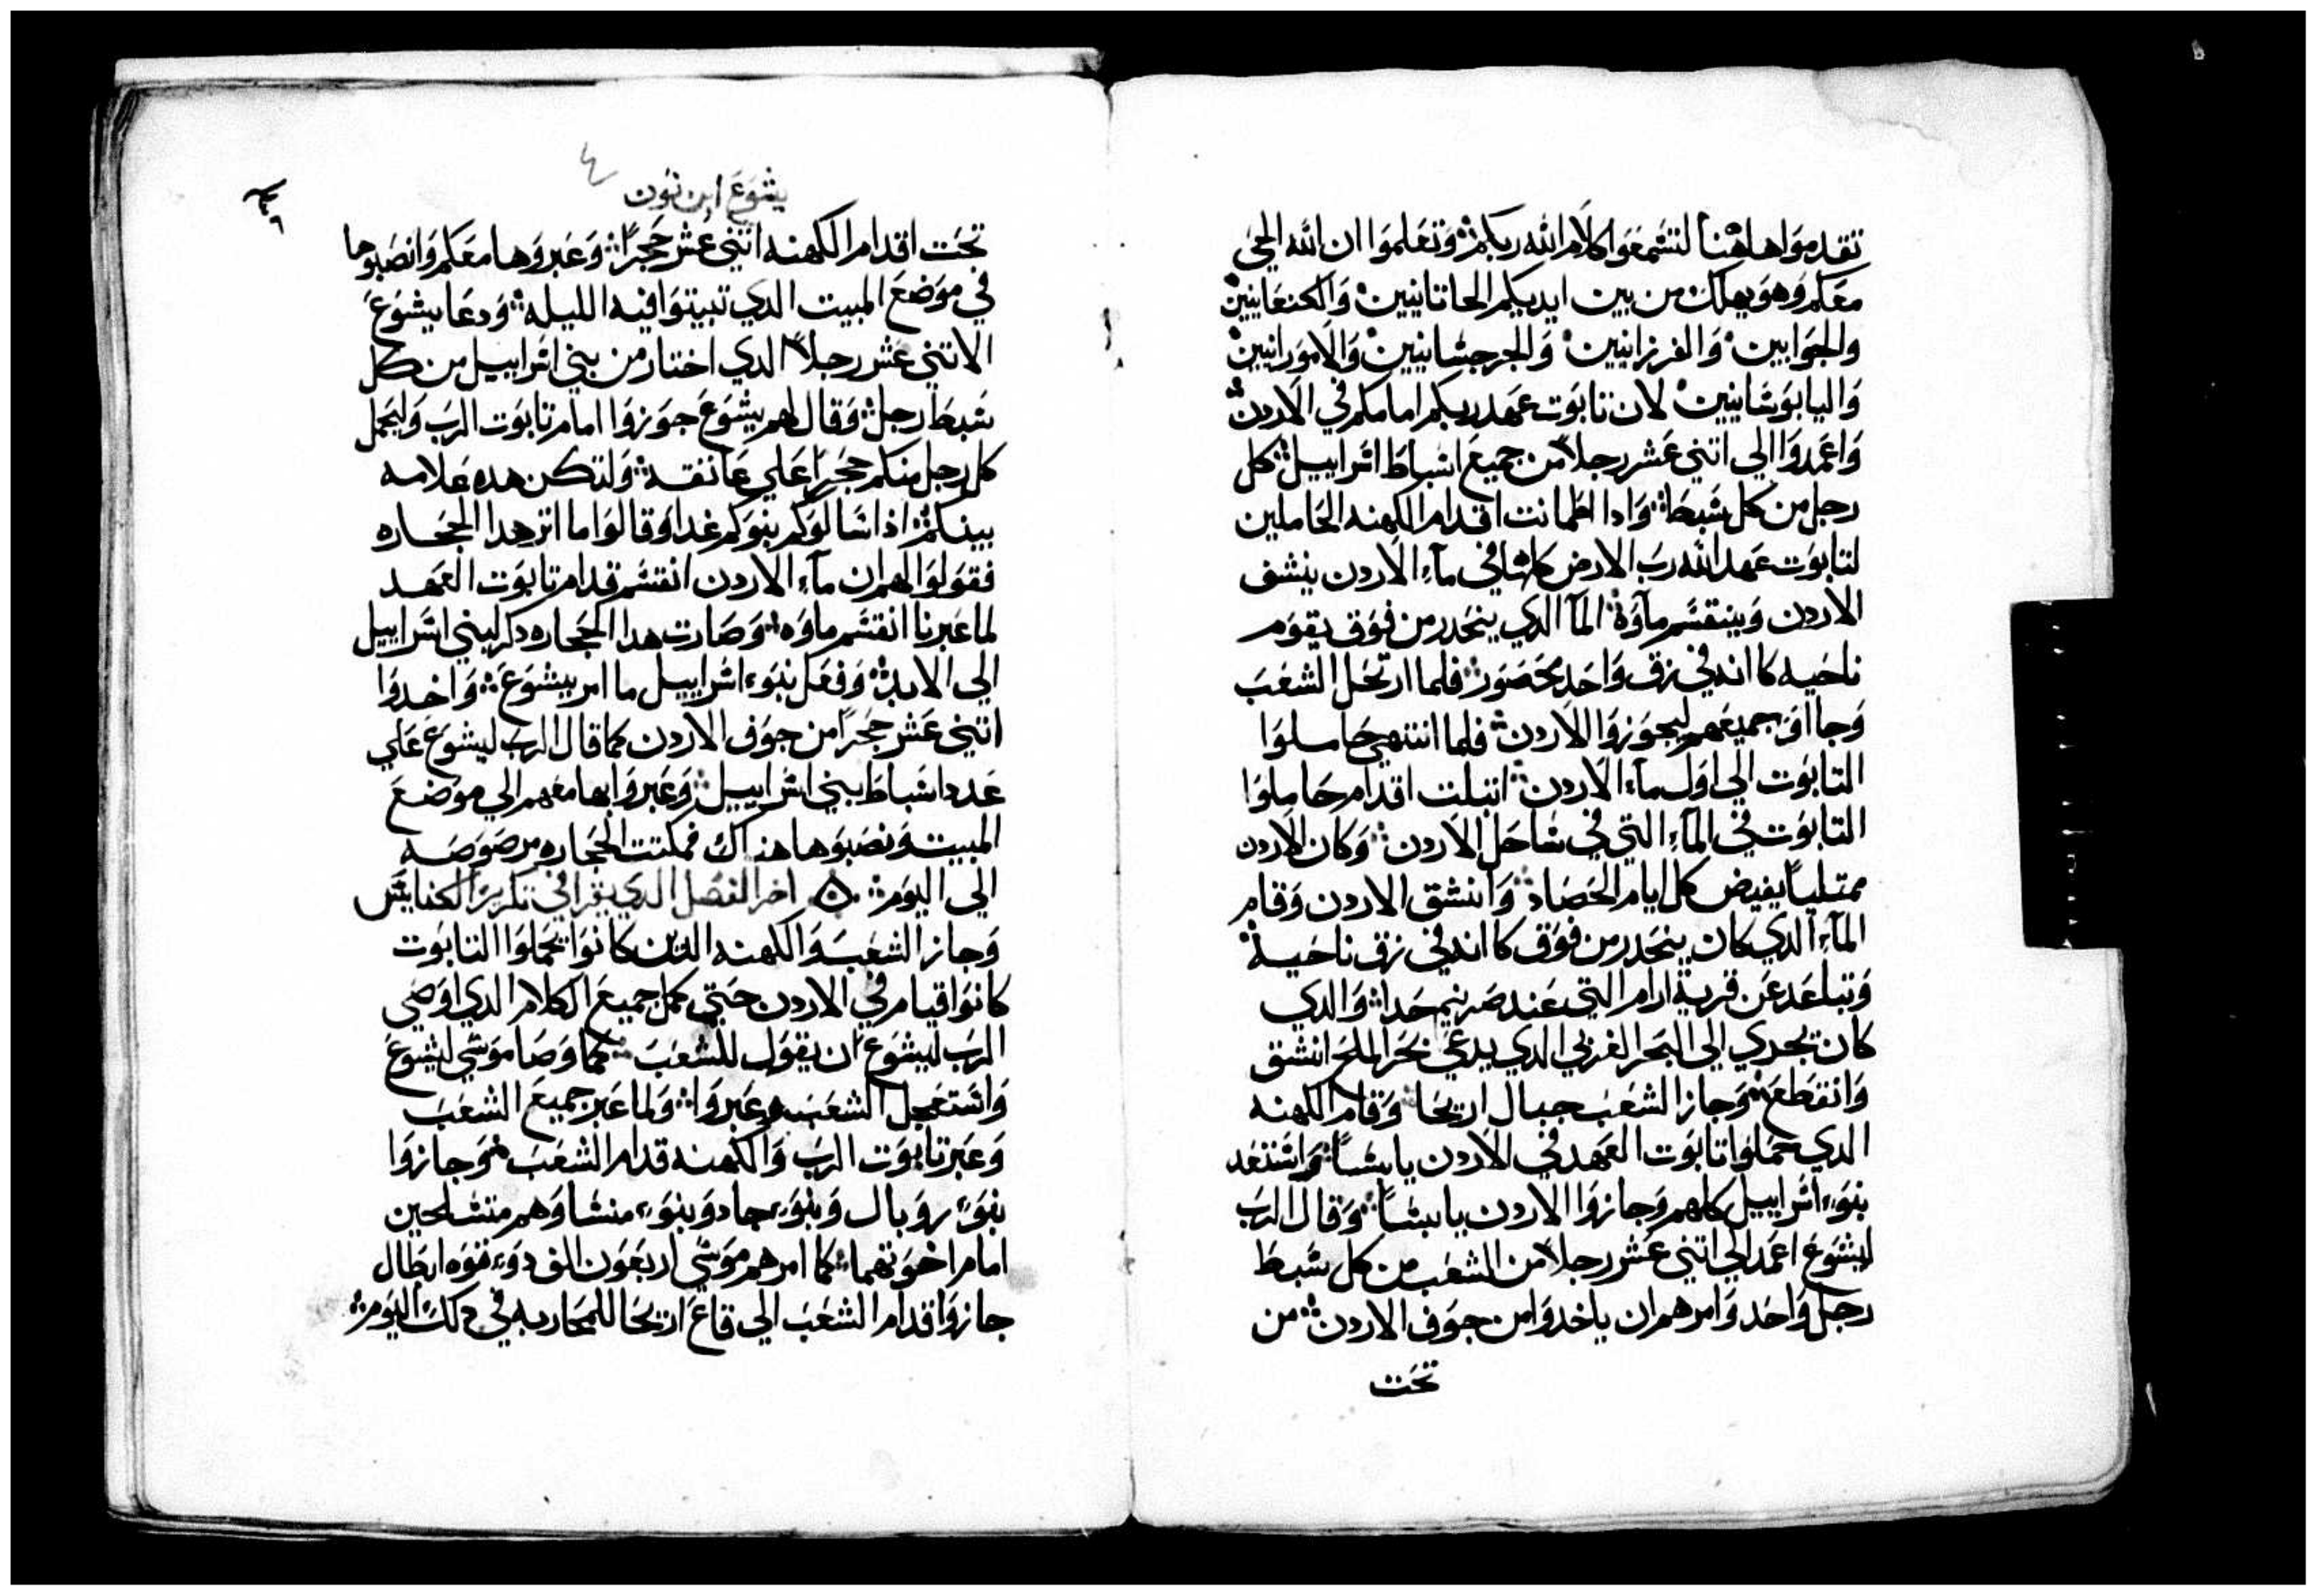 تقدموا هاهنا لتسمعوا كلام الله ربكم وتعلموا ان الله الحي
معكم وهو يهلك من بين ايديكم الحاتانيين والكنعانيين
والحوايين والفرزانيين والجرجسانيين والامورانيين
واليابوسانيين لان تابوت عهد ربكم امامكم في الاردن
واعمدوا الي اتني عشر رجلا من جميع اسباط اسراييل كل
رجل من كل سبط وادا اطمانت اقدام الكهنه الحاملين
لتابوت عهد الله رب الارض كلها في ماء الاردن ينشف
الاردن وينقسم ماوه الما الدي ينحدر من فوق يقوم
ناحيه كانه في زق واحد محصور فلما ارتحل الشعب
وجااو جميعهم ليجوزوا الاردن فلما انتهي حاملوا
التابوت الي اول ماء الاردن ابتلت اقدام حاملوا
التابوت في الماء التي في ساحل الاردن وكان الاردن
ممتلياً يفيض كل ايام الحصاد وانشق الاردن وقام
الماء الدي كان ينحدر من فوق كانه في زق ناحية
وتباعد عن قرية ارام التي عند صرنيم جدا والدي
كان يجري الي البحر الغربي الدي يدعي بحر الملح انشق
وانقطع وجاز الشعب جبال اريحا وقام الكهنه
الدي حملوا تابوت العهد في الاردن يابساً واستعد
بنوء اسراييل كلهم وجازوا الاردن يابساً وقال الرب
ليشوع اعمد الي اتني عشر رجلاً من الشعب من كل سبط
رجل واحد وامرهم ان ياخدوا من جوف الاردن من
تحت
٤
يشوع ابن نون
تحت اقدام الكهنه اتني عشر حجراً وعبروها معكم وانصبوها
في موضع المبيت الدي تبيتوا فيه الليله ودعا يشوع
الاتني عشر رجلاً الدي اختار من بني اسراييل من كل
سبط رجل وقال لهم يشوع جوزوا امام تابوت الرب وليحمل
كل رجل منكم حجراً علي عاتقه ولتكن هده علامه
بينكم اذا سالوكم بنوكم غدا وقالوا ما اتر هدا الحجاره
فقولوا لهم ان ماء الاردن انقسم قدام تابوت العهد
لما عبرنا انقسم ماوه وصارت هدا الحجاره دكر لبني اسراييل
الي الابد وفعل بنوء اسراييل ما امر يشوع واخدوا
اتني عشر حجراً من جوف الاردن كما قال الرب ليشوع علي
عدد اسباط بني اسراييل وعبروا بها معهم الي موضع
المبيت ونصبوها هناك فمكتت الحجاره مرصوصه
الي اليوم اخر الفصل الدي يقرا في تكريز الكنايس
وجاز الشعب والكهنه الدين كانوا يحملوا التابوت
كانوا قيام في الاردن حتي كمل جميع الكلام الدي اوصي
الرب ليشوع ان يقول للشعب كما وصا موسي ليشوع
واستعجل الشعب وعبروا ولما عبر جميع الشعب
وعبر تابوت الرب والكهنه قدام الشعب وجازوا
بنوء روبال وبنوء جاد وبنوء منشا وهم متسلحين
امام اخوتهما كما امرهم موسي اربعون الف دوء قوه ابطال
جازوا قدام الشعب الي قاع اريحا للمحاربه في دلك اليوم